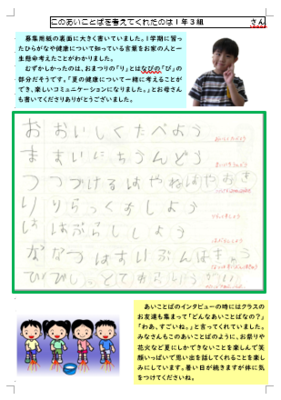 このあいことばを考えてくれたのは１年３組　さん
募集用紙の裏面に大きく書いていました。１学期に習っ
たひらがなや健康について知っている言葉をお家の人と一
生懸命考えたことがわかりました。
むずかしかったのは、おまつりの「り」とはなびの「び」の
部分だそうです。「夏の健康について一緒に考えることが
でき、楽しいコミュニケーションになりました。」とお母さん
も書いてくださりありがとうございました。
お おいしくたべよう
ま まいにちうんどう
つ つづけるはやねはやおき
り りらっくすしよう
は はぶらししよう
な なつはすいぶんほきゅう
あいことばのインタビューの時にはクラスの
お友達も集まって「どんなあいことばなの？」
「わあ、すごいね。」と言ってくれていました。
みなさんもこのあいことばのように、お祭りや
花火など夏にしかできないことを楽しんで笑
顔いっぱいで思い出を話してくれることを楽し
みにしています。暑い日が続きますが体に気
をつけてくださいね。